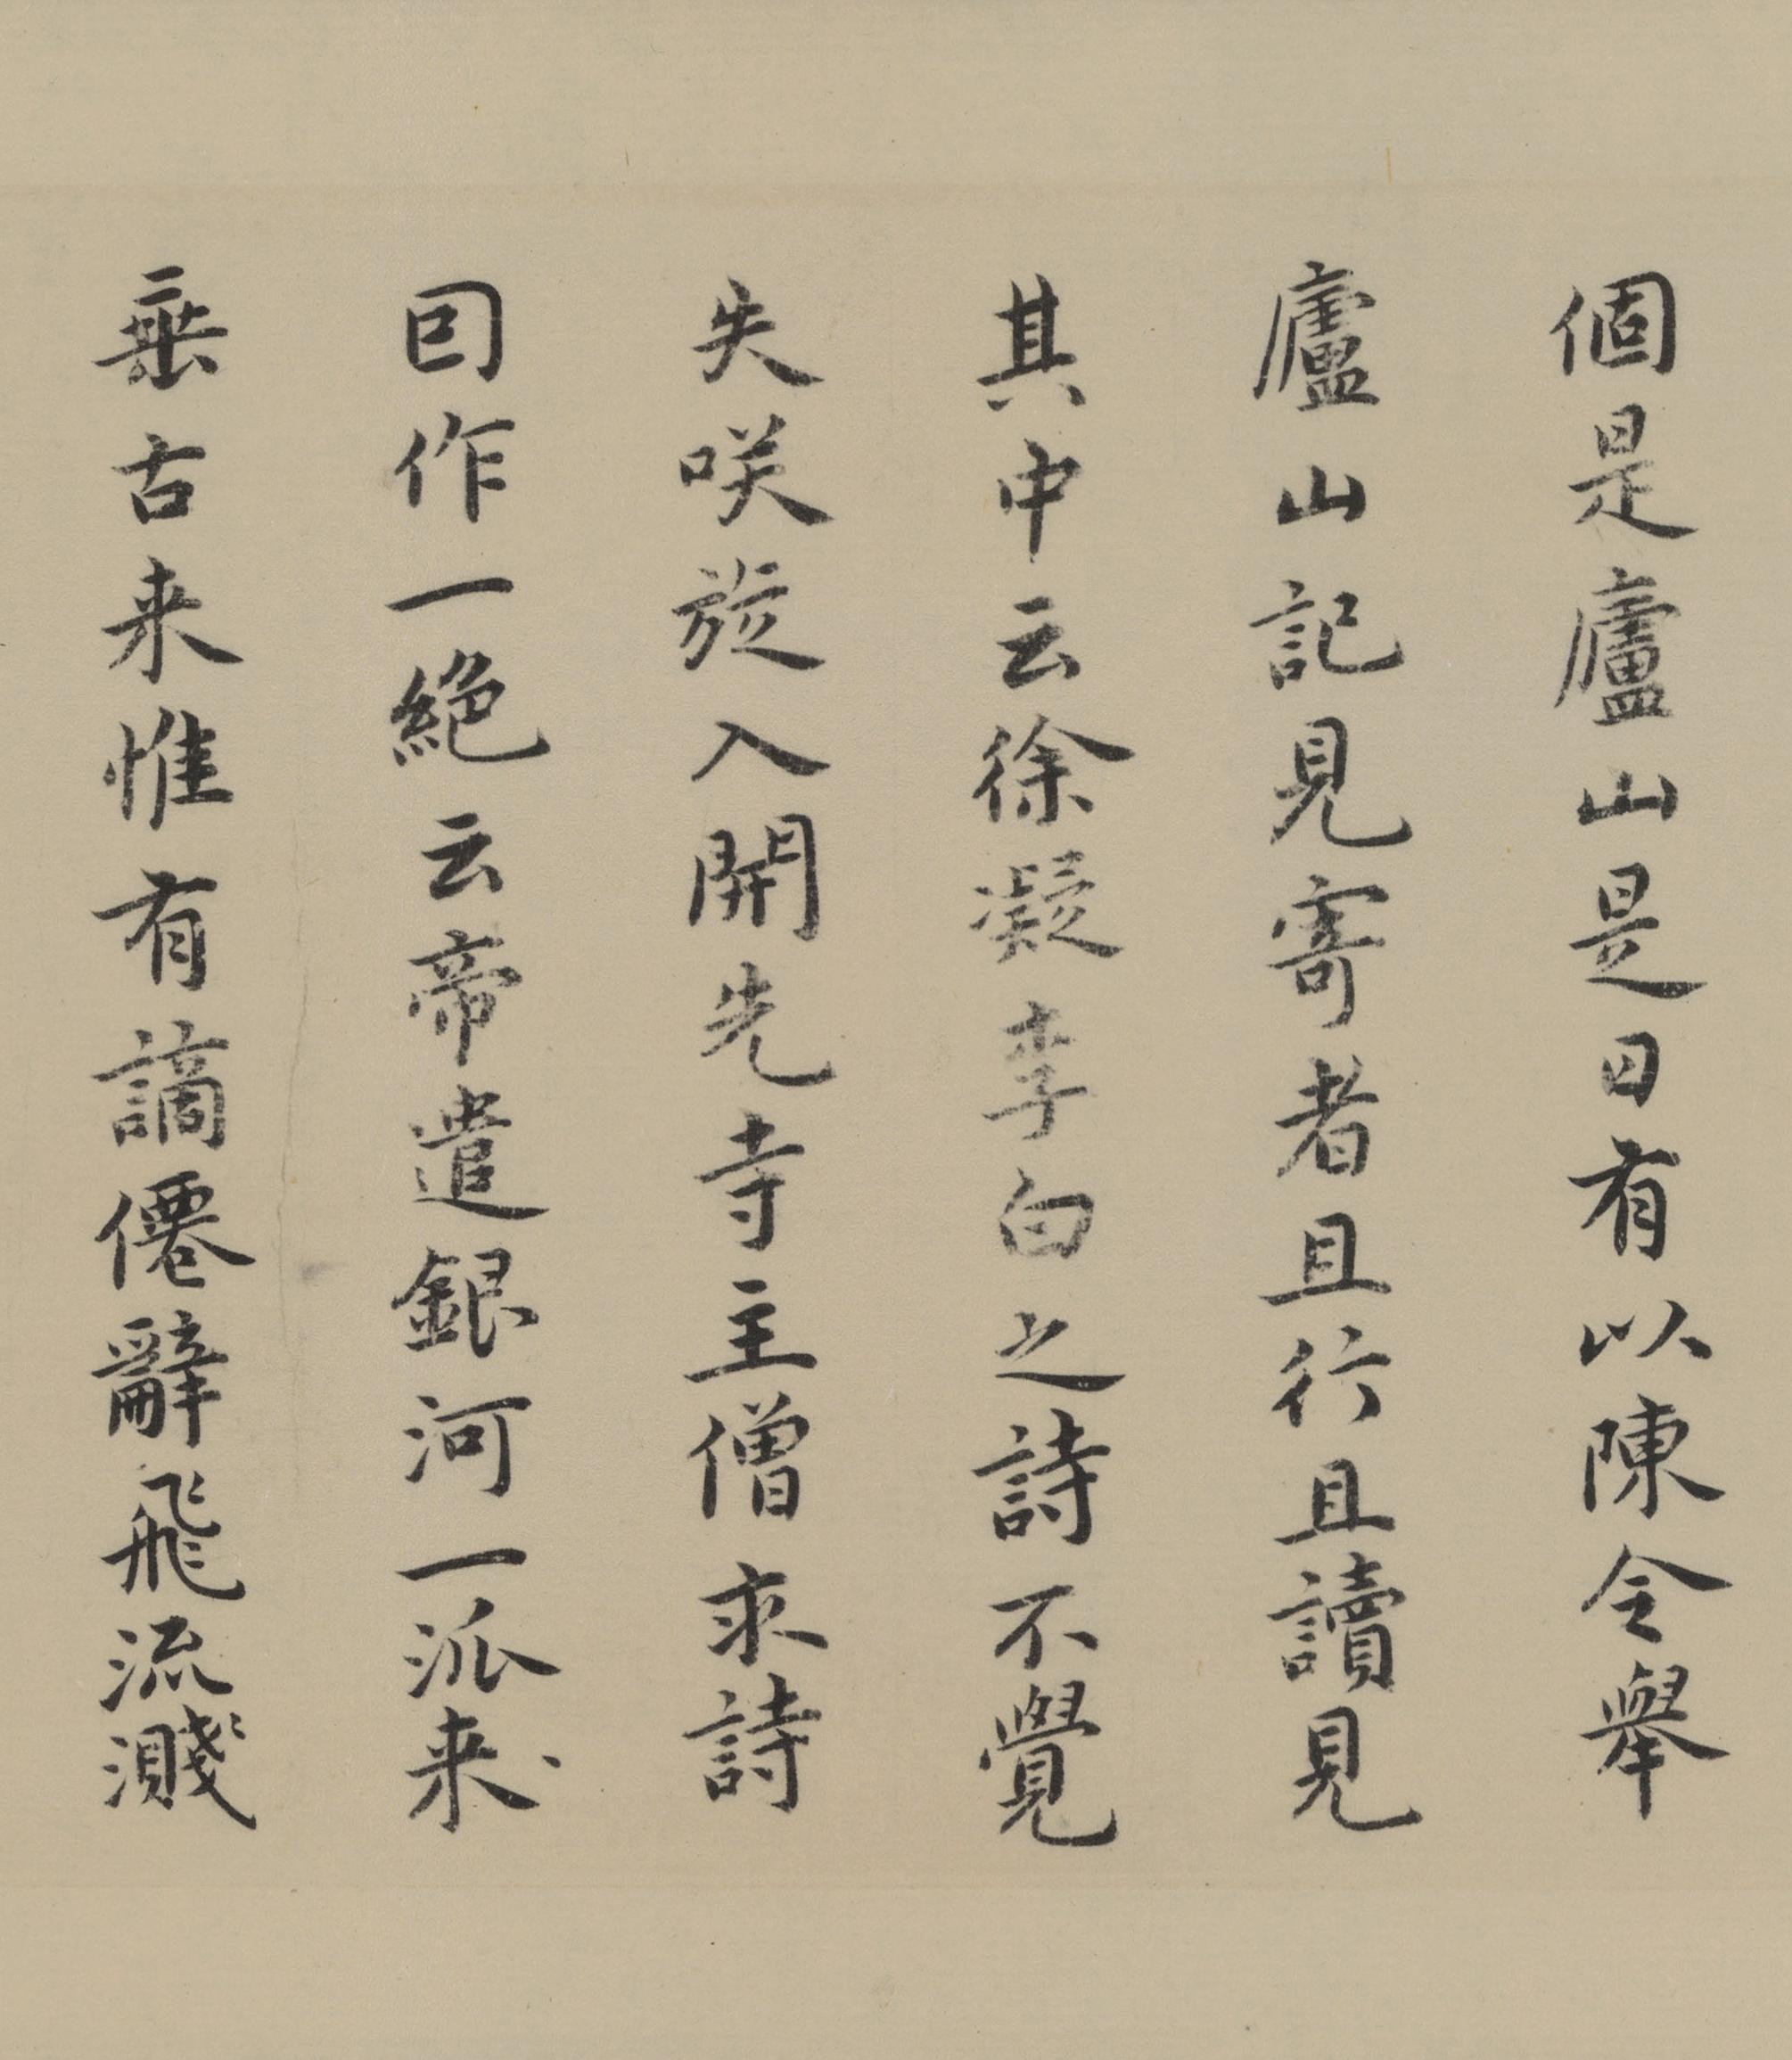 個是廬山是日有以陳令舉
廬山記見寄者且行且讀見
其中云徐凝李白之詩不覺
失咲旋入開先寺主僧求詩
囙作一絕云帝遣銀河一派来
垂古来惟有謫僊辭飛流濺